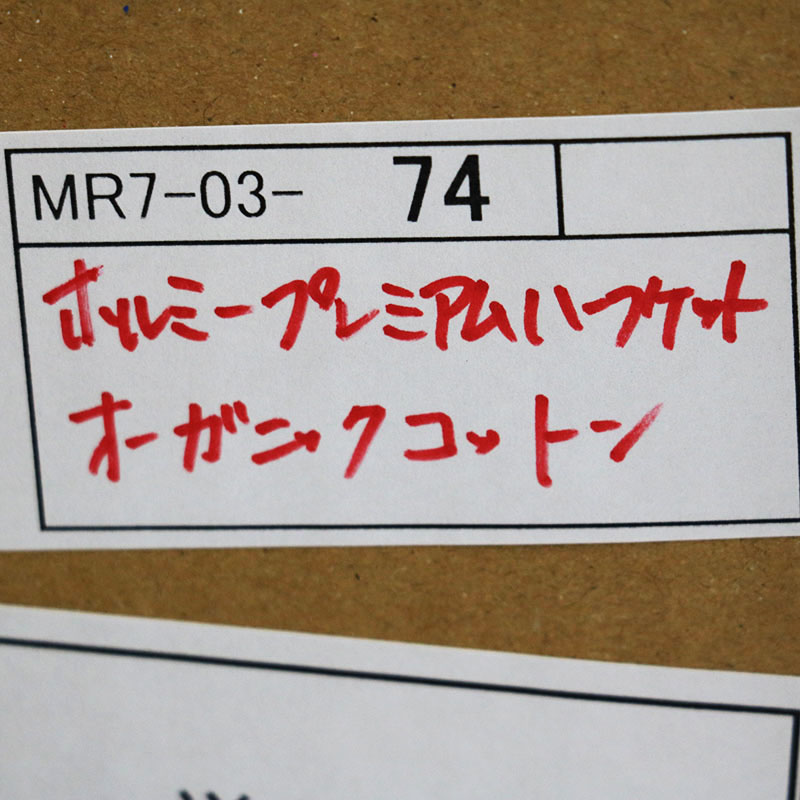 MR7-03- 74
オールミープレミアムハーフケット
オーガニックコットン